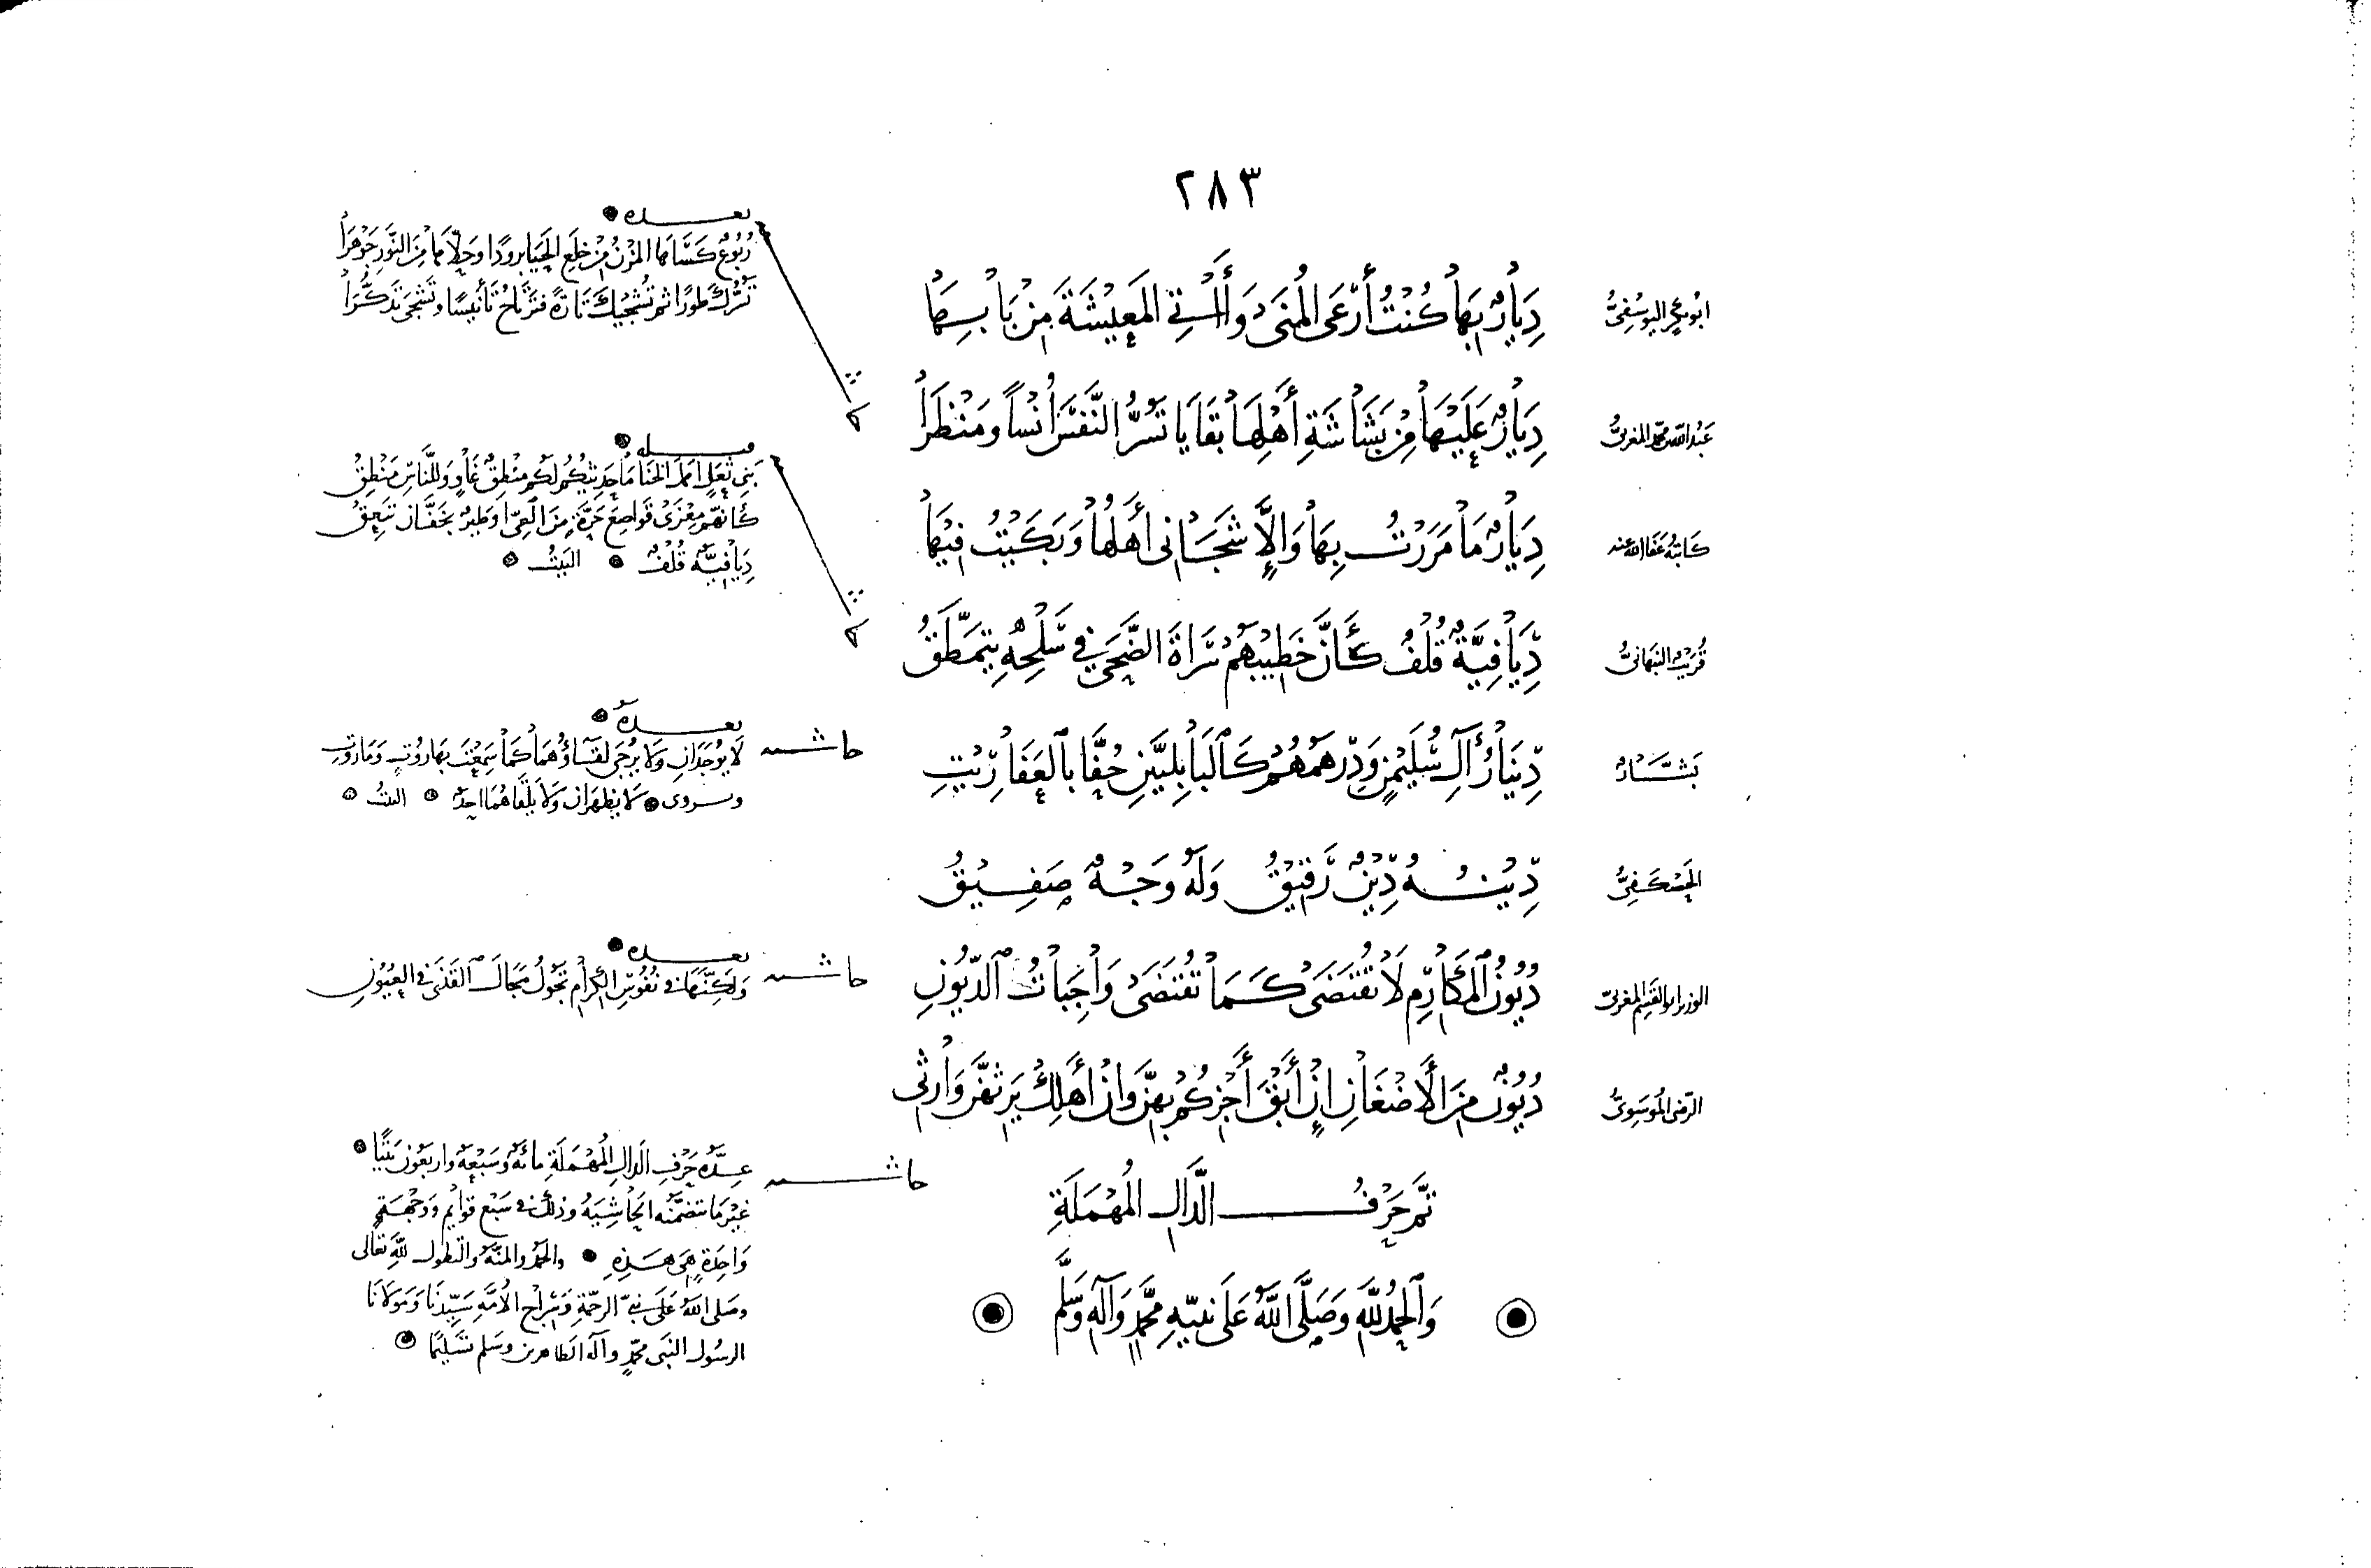 ٢٨٣
ابو بكر اليوسفيُّ
دِيَارٌ بِهَا كُنْتُ أَرْعَى الْمُنَى وَأَسْتَقِي الْمَعِيشَةَ مِنْ بَابِهَا
عَبْدُ الله بن محمد المغربيُّ
دِيَارٌ عَلَيْهَا مِنْ بَشَاشَةِ أَهْلِهَا بَقَايَا تَسُرُّ النَّفْسَ أُنْسًا وَمَنْظَرَا
كَاتِبُهُ عَفَا الله عنه
دِيَارٌ مَا مَرَرْتُ بِهَا وَإِلَّا شَجَانِي أَهْلُهَا وَبَكَيْتُ فِيهَا
النبهانيُّ
دِيَافِيَّةٌ قُلْفٌ كَأَنَّ خَطِيبَهُمْ سَرَاةَ الضُّحَى فِي سَلْحِهِ يَتَمَطَّقُ
بَشَّارٌ
دِينَارُ آلِ سُلَيْمٰنٍ وَدِرْهَمُهُمْ كَالْبَابِلِيَّيْنِ حُفَّا بِالْعَفَارِيتِ
الحَصْكَفِيُّ
دِينُهُ دِينٌ رَقِيقٌ وَلَهُ وَجْهٌ صَفِيقُ
الوزير ابو القسم المغربيّ
دُيُونُ الْمَكَارِمِ لَا تُقْتَضَى كَمَا تُقْتَضَى وَاجِبَاتُ الدُّيُونِ
الرضى المُوسَوِيُّ
دُيُونٌ مِنَ الْأَضْغَانِ إِنْ أَبْقَ أَجْزِكُمْ بِهِنَّ وَإِنْ أَهْلِكْ يَرِثْهُنَّ وَارِثِي
تَمَّ حَرْفُ الدَّالِ الْمُهْمَلَةِ
وَالْحَمْدُ لِلَّهِ وَصَلَّى اللَّهُ عَلَى نَبِيِّهِ مُحَمَّدٍ وَآلِهِ وَسَلَّمَ
بعده
رُبُوعٌ كَسَاهَا الْمُزْنُ مِنْ خِلَعِ الْحَيَا بُرُودًا وَحَلَّاهَا مِنَ النَّوْرِ جَوْهَرَا
تَسُرُّكَ طَوْرًا ثُمَّ تُشْجِيكَ تَارَةً فَتَرْتَاحُ تَأْنِيسًا وَتُشْجَى تَذَكُّرَا
قبله
بَنِي ثُعَلٍ أَهْلَ الْخَنَا مَا حَدِيثُكُمْ لَكُمْ مَنْطِقٌ غَاوٍ وَلِلنَّاسِ مَنْطِقُ
كَأَنَّهُمُ مِعْزَى قَوَاصِعَ جِرَّةٍ مِنَ الْعِيِّ أَوْ طَيْرٌ بِخَفَّانَ تَنْعِقُ
دِيَافِيَّةٌ قُلْفٌ البَيْتُ
حاشية
بعده
لَا يُوجَدَانِ وَلَا يُرْجَى لِقَاؤُهُمَا كَمَا سَمِعْتَ بِهَارُوتٍ وَمَارُوتِ
ويروى لَا يظهَرَان وَلَا يَلْقَاهُمَا احدٌ البيتُ
حاشية
بعده
وَلَكِنَّهَا فِي نُفُوسِ الْكِرَامِ تَجُولُ مَجَالَ الْقَذَى فِي الْعُيُونِ
حاشية
عِدَّةُ حَرْفِ الدَّالِ الْمُهْمَلَةِ مائةٌ وَسَبْعَةٌ واربَعُون بَيْتًا
غَيْرَ مَا تتضمَّنه الْحَاشِيَةُ وذلك في سَبْع قوَايِم وَوَجْهَةٍ
وَاحِدَةٍ هِيَ هَذِهِ والحمدُ والمنَّة والطول للَّهِ تعَالى
وصَلى اللهُ عَلَى نبيِّ الرحمَةِ وَسِرَاجِ الأُمَّةِ سَيِّدِنَا وَمَوْلَانَا
الرسُول النبي محمّدٍ وآله الطاهرين وسَلم تسْلِيمًا